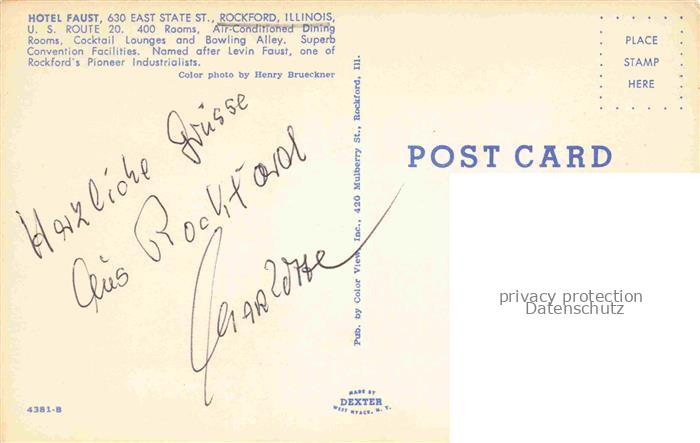 HOTEL FAUST, 630 EAST STATE ST., ROCKFORD, ILLINOIS,
U. S. ROUTE 20. 400 Rooms, Air-Conditioned Dining
Rooms, Cocktail Lounges and Bowling Alley. Superb
Convention Facilities. Named after Levin Faust, one of
Rockford's Pioneer Industrialists.
Color photo by Henry Brueckner
Herzliche Grüsse
aus Rockford
Charlotte
4381-B
Pub. by Color View, Inc., 420 Mulberry St., Rockford, Ill.
MADE BY
DEXTER
WEST NYACK, N. Y.
PLACE
STAMP
HERE
POST CARD
privacy protection
Datenschutz